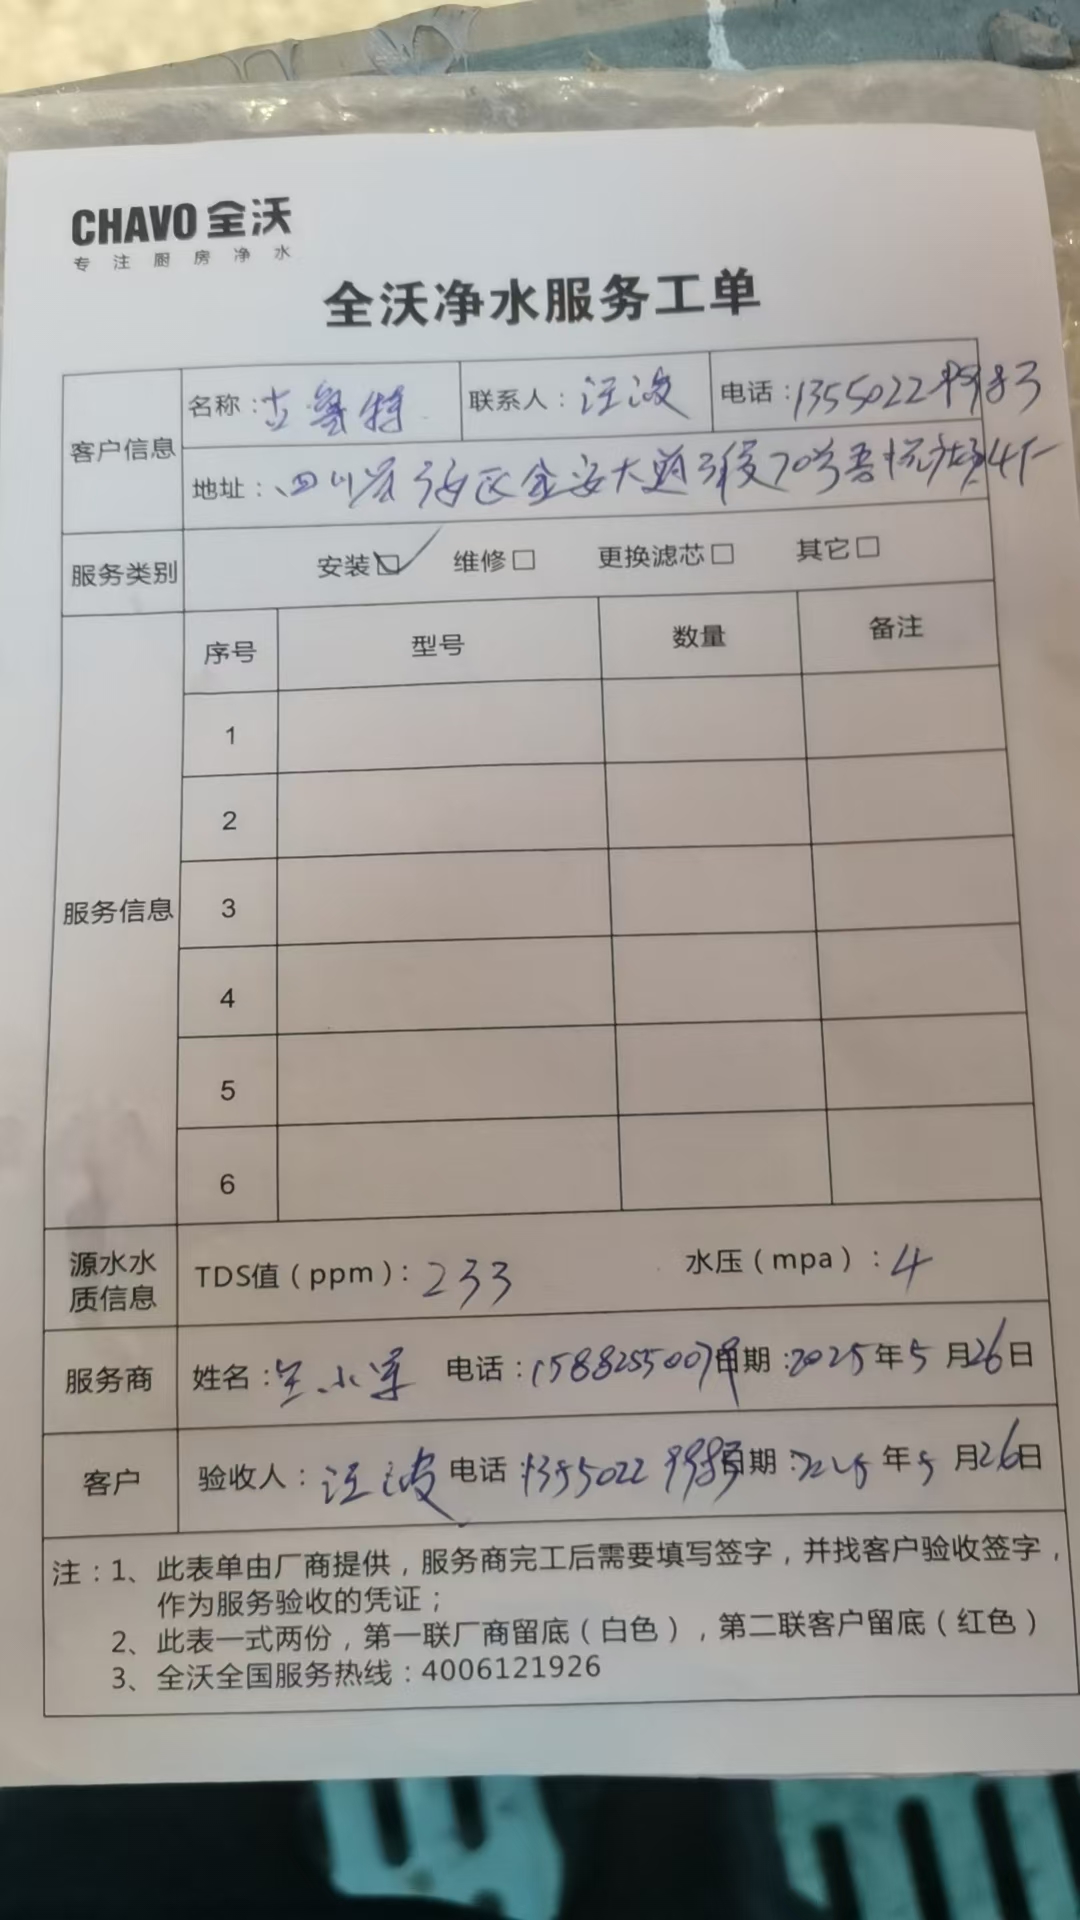 CHAVO 全沃
专注厨房净水
全沃净水服务工单
客户信息
名称：古鲁特 联系人：汪波 电话：1355022
地址：四川省 安区金安大道 段70号吾悦广场4F
服务类别 安装☑ 维修□ 更换滤芯□ 其它□
服务信息
序号 型号 数量 备注
1
2
3
4
5
6
源水水质信息
TDS值（ppm）：233 水压（mpa）：4
服务商 姓名： 小军 电话：1588255007 日期：2025年5月26日
客户 验收人：汪波 电话：1355022 日期：2025年5月26日
注：1、此表单由厂商提供，服务商完工后需要填写签字，并找客户验收签字，
作为服务验收的凭证；
2、此表一式两份，第一联厂商留底（白色），第二联客户留底（红色）
3、全沃全国服务热线：4006121926